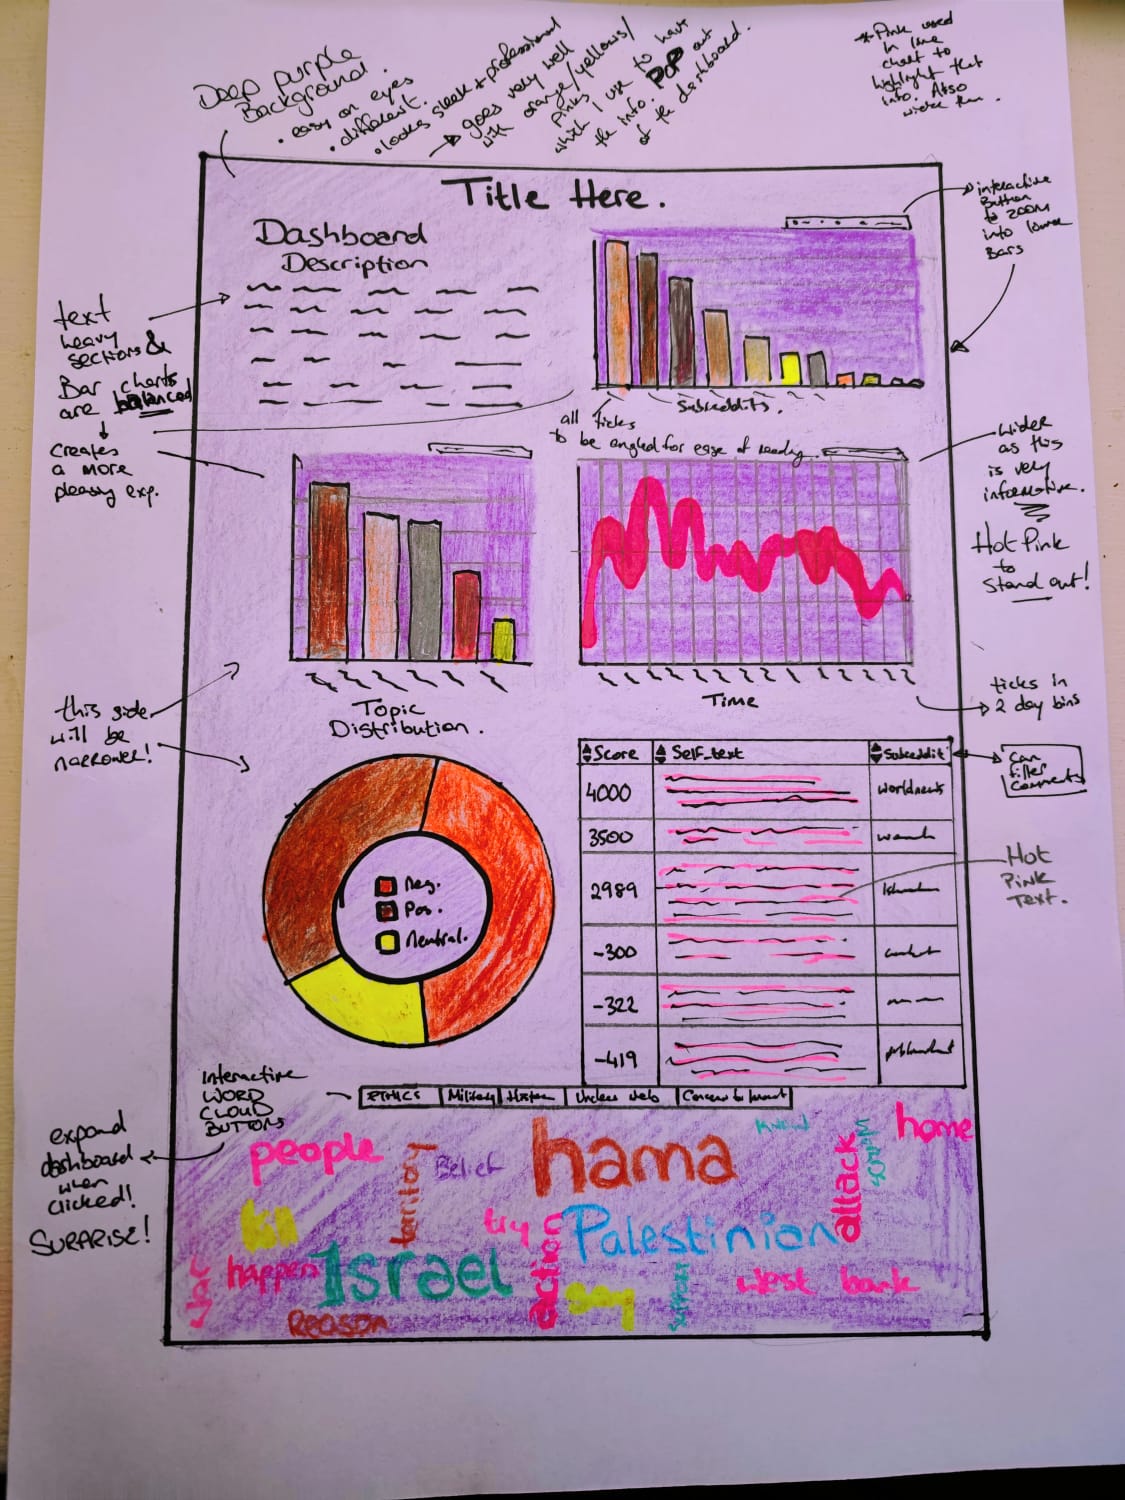 Deep purple
Background.
• easy on eyes
• different.
• looks sleek + professional
→ goes very well
with orange/yellows/
pinks
which I use to have
the info. POP out
of the dashboard.
* Pink used
in line
chart to
highlight that
info. Also
wider then.
Title Here.
Dashboard
Description
interactive
Button
to zoom
into lower
Bars
text
heavy
sections &
Bar charts
are balanced
creates
a more
pleasing exp.
Subreddits.
all ticks
to be angled for ease of reading.
wider
as this
is very
informative.
Hot Pink
to
Stand out!
Topic
Distribution.
Time
ticks in
2 day bins
this side
will be
narrower!
Score Self_text Subreddit
4000 worldnews
3500
2989
-300
-322
-419
Can
filter
comments
Hot
Pink
Text.
Neg.
Pos.
Neutral.
interactive
WORD
CLOUD
BUTTONS
ETHICS Military
expand
dashboard
when
clicked!
SURPRISE!
people
territory
Belief
hama
know
attack
home
try
action
Palestinian
war
happen
Israel
say
support
west bank
Reason